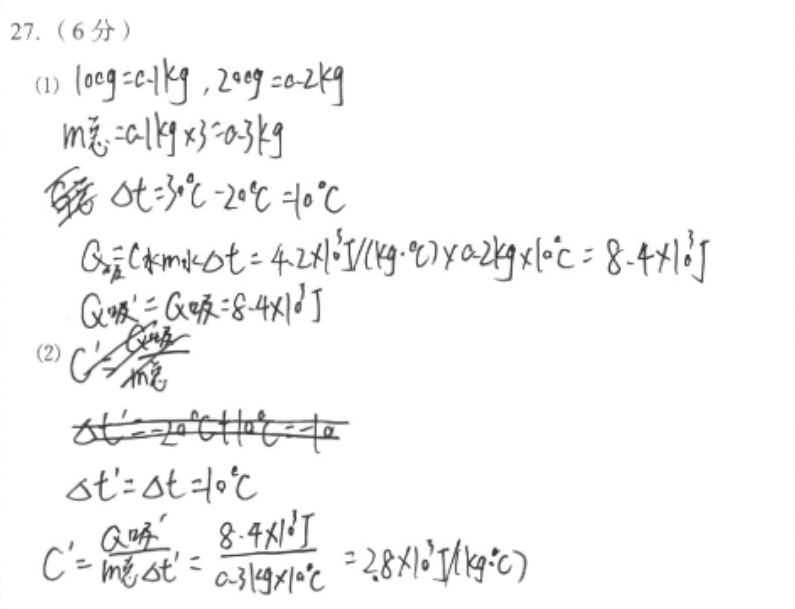 27.(6分)
(1) 100g=0.1kg,200g=0.2kg
m总=0.1kg×3=0.3kg
Δt=30℃-20℃=10℃
Q吸=C水m水Δt=4.2×10³J/(kg·℃)×0.2kg×10℃=8.4×10³J
Q吸'=Q吸=8.4×10³J
(2) C'=Q吸/m总
Δt'=-20℃+10℃=-10
Δt'=Δt=10℃
C'=Q吸'/m总Δt'=8.4×10³J/0.3kg×10℃=2.8×10³J/(kg·℃)